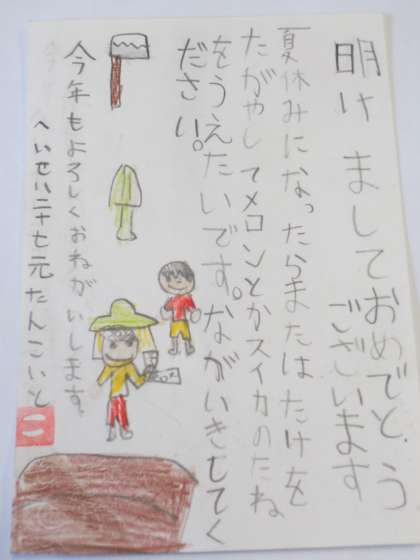 明けましておめでとう
ございます
夏休みになったらまたはたけを
たがやしてメロンとかスイカのたね
をうえたいです。ながいきしてく
ださい。
今年もよろしくおねがいします。
へいせい二十七元たんこいと